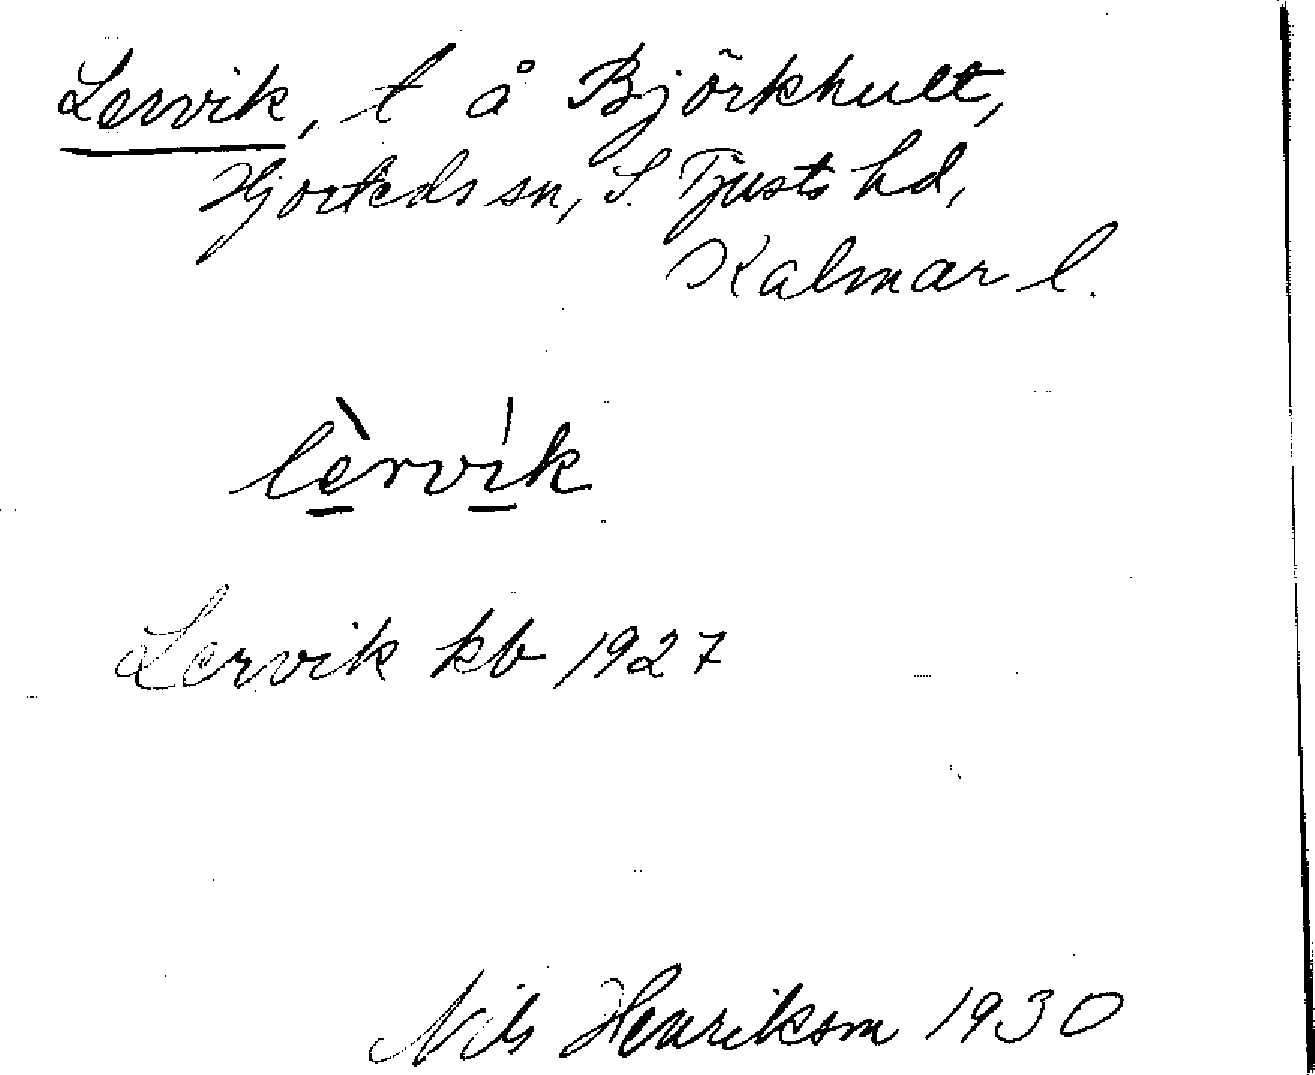 Lervik, t å Björkhult,
Hjorteds sn, S. Tjusts hd,
Kalmar l.
lèrvík
Lervik kb 1927
Nils Henrikson 1930